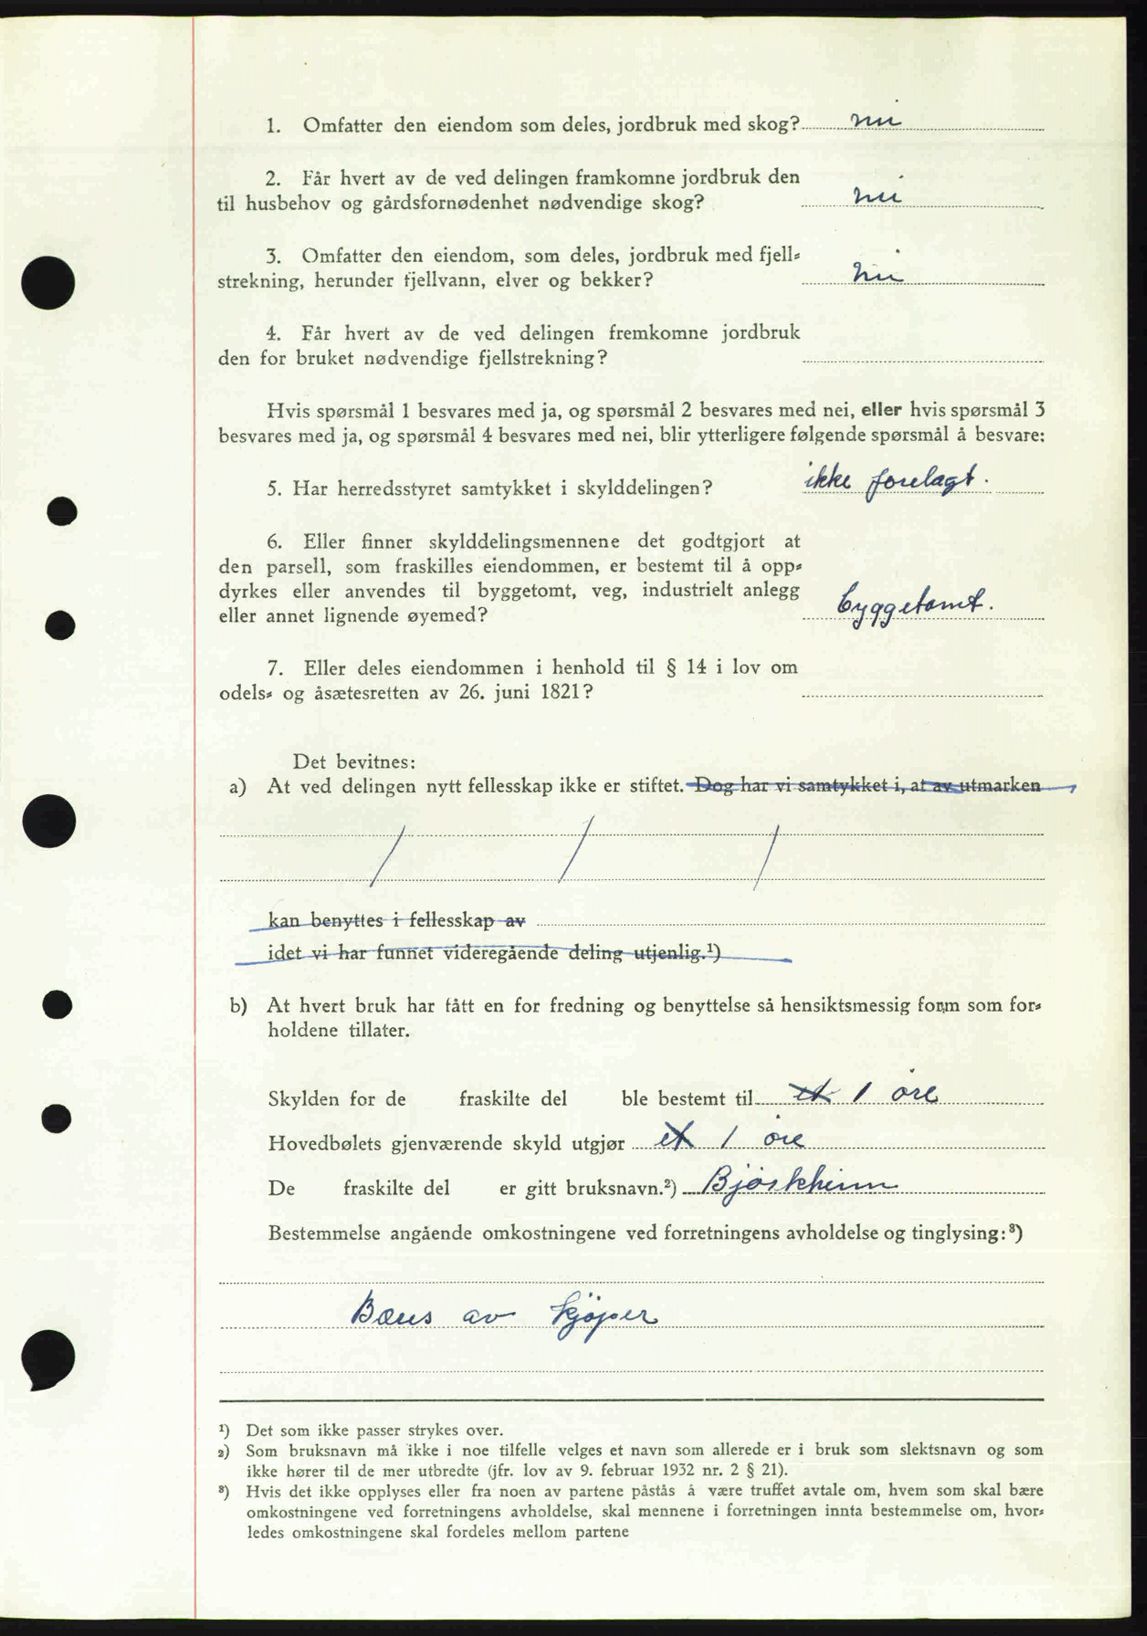 1. Omfatter den eiendom som deles, jordbruk med skog? nei
2. Får hvert av de ved delingen framkomne jordbruk den
til husbehov og gårdsfornødenhet nødvendige skog? nei
3. Omfatter den eiendom, som deles, jordbruk med fjell-
strekning, herunder fjellvann, elver og bekker? nei
4. Får hvert av de ved delingen fremkomne jordbruk
den for bruket nødvendige fjellstrekning?
Hvis spørsmål 1 besvares med ja, og spørsmål 2 besvares med nei, eller hvis spørsmål 3
besvares med ja, og spørsmål 4 besvares med nei, blir ytterligere følgende spørsmål å besvare:
5. Har herredsstyret samtykket i skylddelingen? ikke forelagt.
6. Eller finner skylddelingsmennene det godtgjort at
den parsell, som fraskilles eiendommen, er bestemt til å opp-
dyrkes eller anvendes til byggetomt, veg, industrielt anlegg
eller annet lignende øyemed? byggetomt.
7. Eller deles eiendommen i henhold til § 14 i lov om
odels- og åsætesretten av 26. juni 1821?
Det bevitnes:
a) At ved delingen nytt fellesskap ikke er stiftet. Dog har vi samtykket i, at av utmarken
kan benyttes i fellesskap av
idet vi har funnet videregående deling utjenlig.¹)
b) At hvert bruk har fått en for fredning og benyttelse så hensiktsmessig form som for-
holdene tillater.
Skylden for de fraskilte del ble bestemt til et 1 öre
Hovedbølets gjenværende skyld utgjør et 1 öre
De fraskilte del er gitt bruksnavn.²) Björkheim
Bestemmelse angående omkostningene ved forretningens avholdelse og tinglysing:³)
Bæres av kjøper
¹) Det som ikke passer strykes over.
²) Som bruksnavn må ikke i noe tilfelle velges et navn som allerede er i bruk som slektsnavn og som
ikke hører til de mer utbredte (jfr. lov av 9. februar 1932 nr. 2 § 21).
³) Hvis det ikke opplyses eller fra noen av partene påstås å være truffet avtale om, hvem som skal bære
omkostningene ved forretningens avholdelse, skal mennene i forretningen innta bestemmelse om, hvor-
ledes omkostningene skal fordeles mellom partene